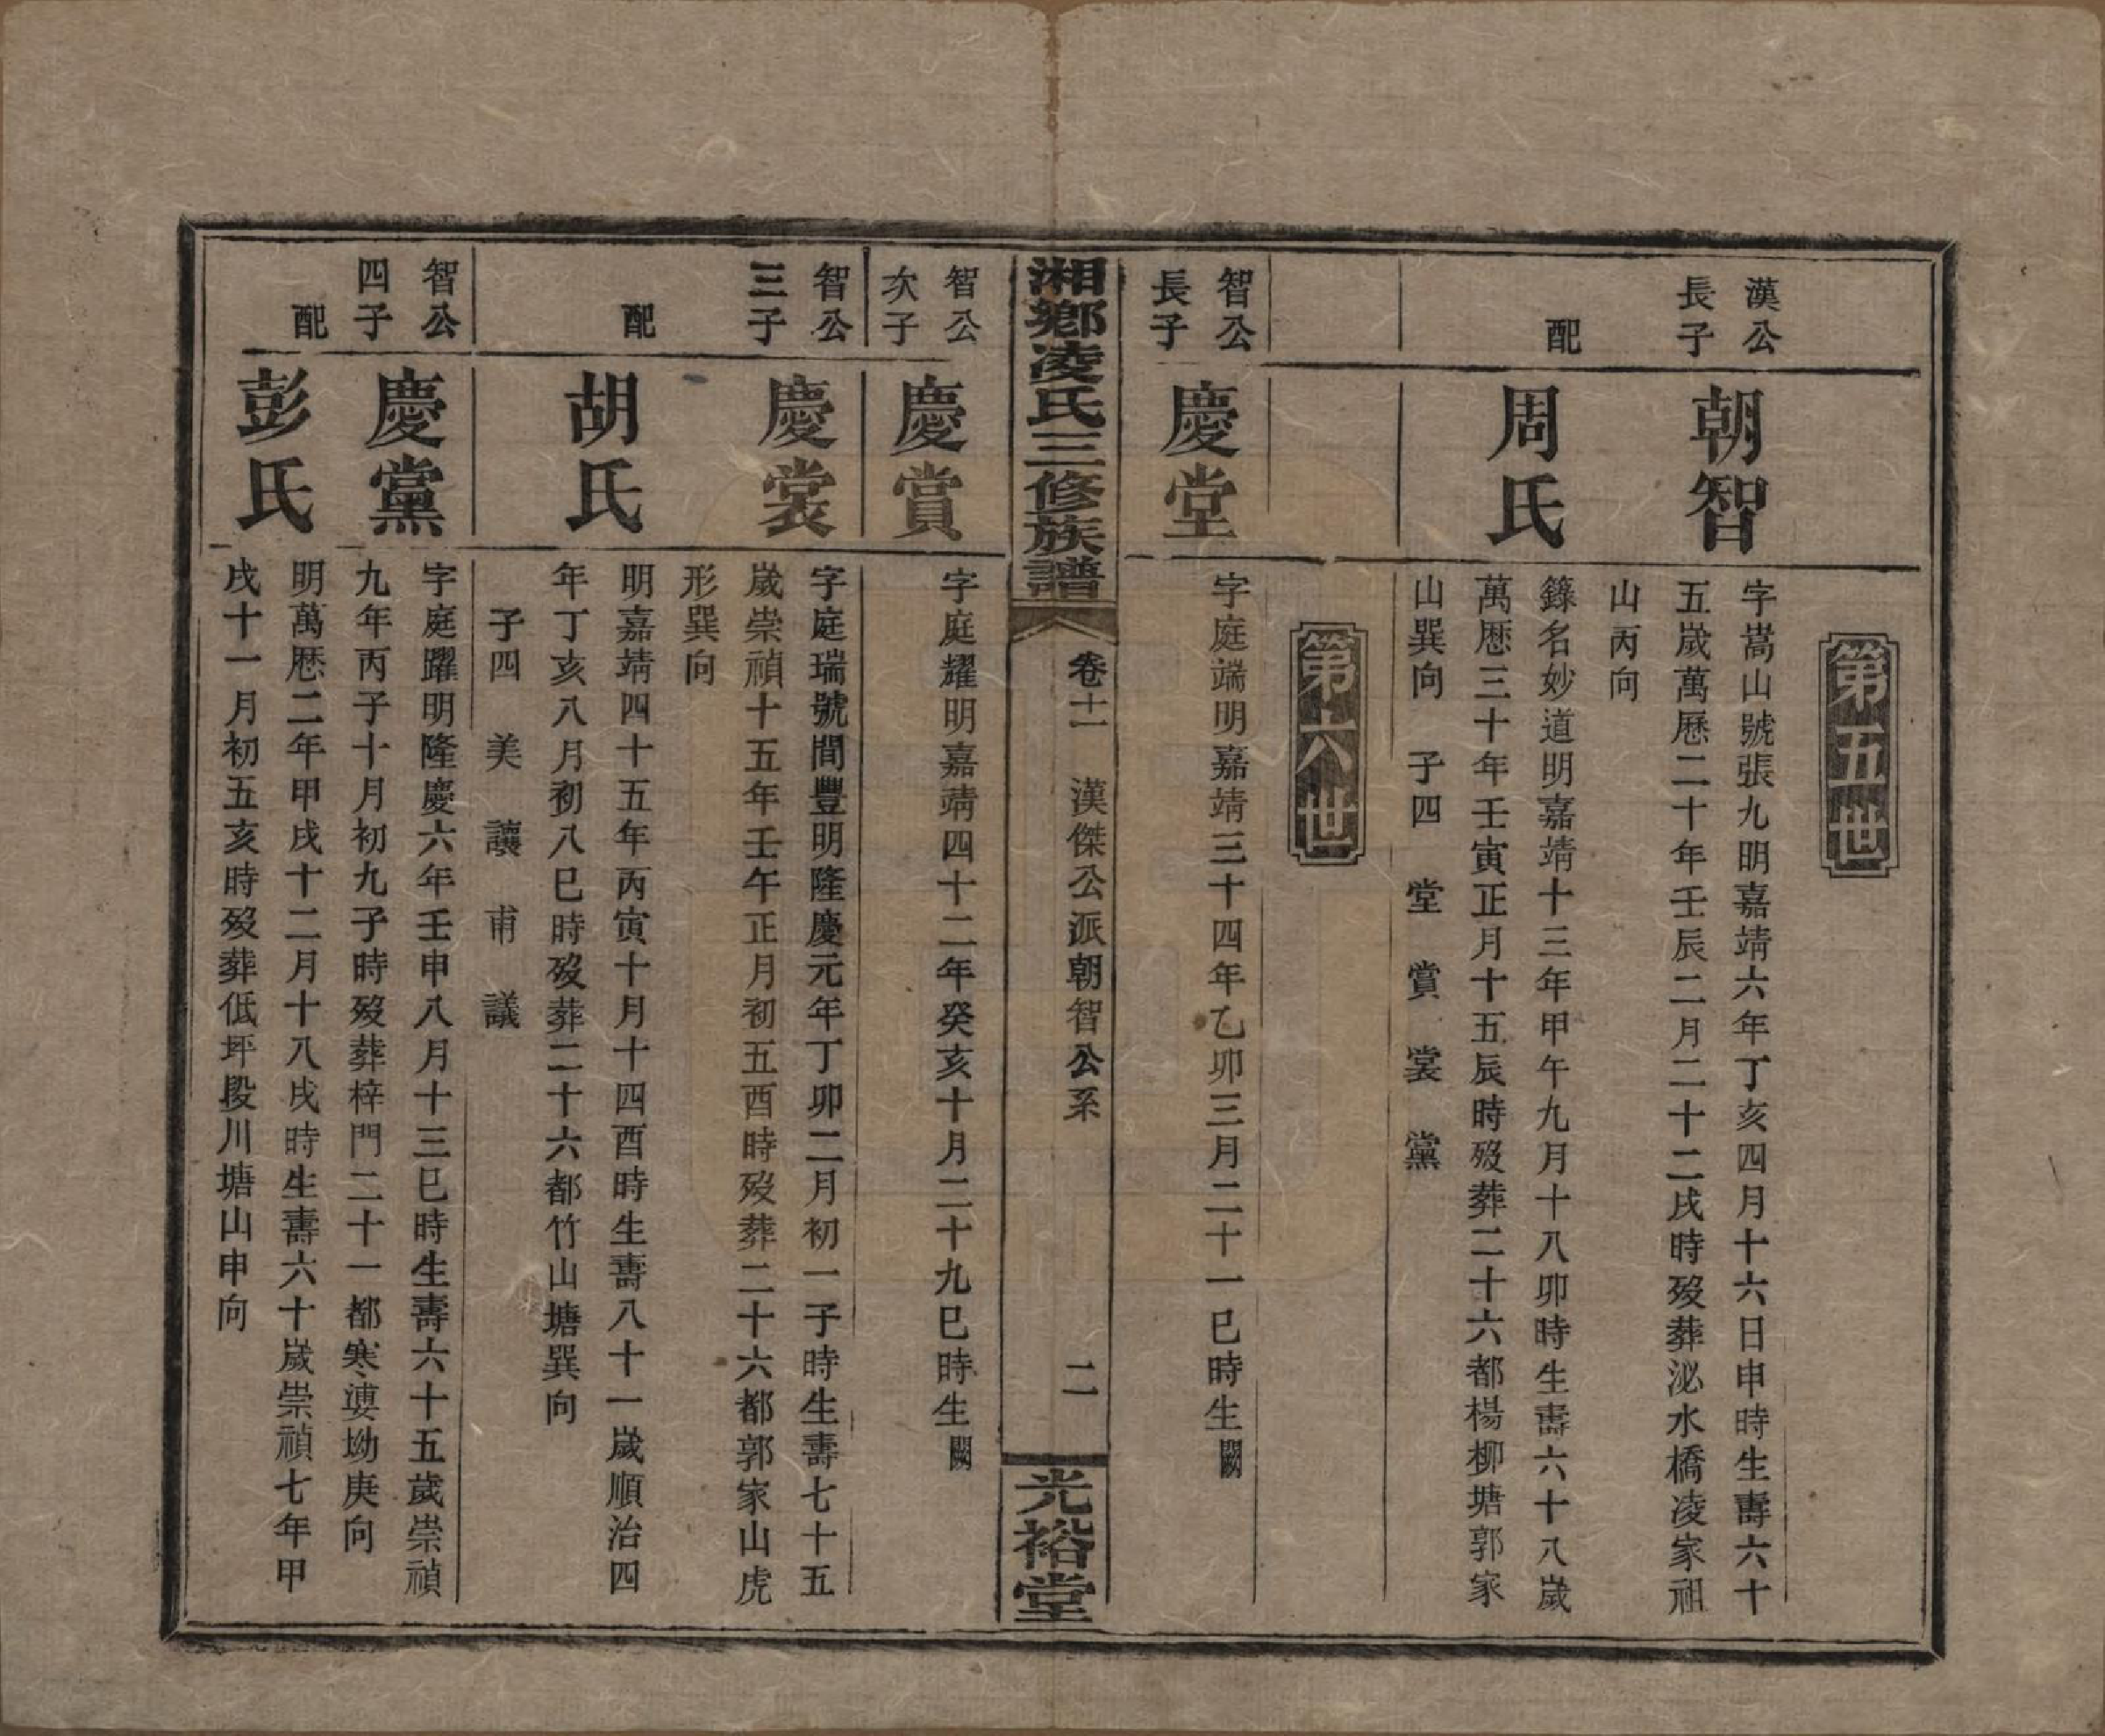 第五世
漢公
長子
朝智
字嵩山號張九明嘉靖六年丁亥四月十六日申時生壽六十
五歲萬歷二十年壬辰二月二十二戌時歿葬泌水橋凌家祖
山丙向
配
周氏
錄名妙道明嘉靖十三年甲午九月十八卯時生壽六十八歲
萬歷三十年壬寅正月十五辰時歿葬二十六都楊柳塘郭家
山巽向 子四 堂 賞 裳 黨
第六世
智公
長子
慶堂
字庭端明嘉靖三十四年乙卯三月二十一巳時生闕
湘鄉凌氏三修族譜
卷十一 漢傑公派朝智公系
二
光裕堂
智公
次子
慶賞
字庭耀明嘉靖四十二年癸亥十月二十九巳時生闕
智公
三子
慶裳
字庭瑞號間豐明隆慶元年丁卯二月初一子時生壽七十五
歲崇禎十五年壬午正月初五酉時歿葬二十六都郭家山虎
形巽向
配
胡氏
明嘉靖四十五年丙寅十月十四酉時生壽八十一歲順治四
年丁亥八月初八巳時歿葬二十六都竹山塘巽向
子四 美 讓 甫 議
智公
四子
慶黨
字庭躍明隆慶六年壬申八月十三巳時生壽六十五歲崇禎
九年丙子十月初九子時歿葬梓門二十一都寒婆坳庚向
配
彭氏
明萬歷二年甲戌十二月十八戌時生壽六十歲崇禎七年甲
戌十一月初五亥時歿葬低坪段川塘山申向